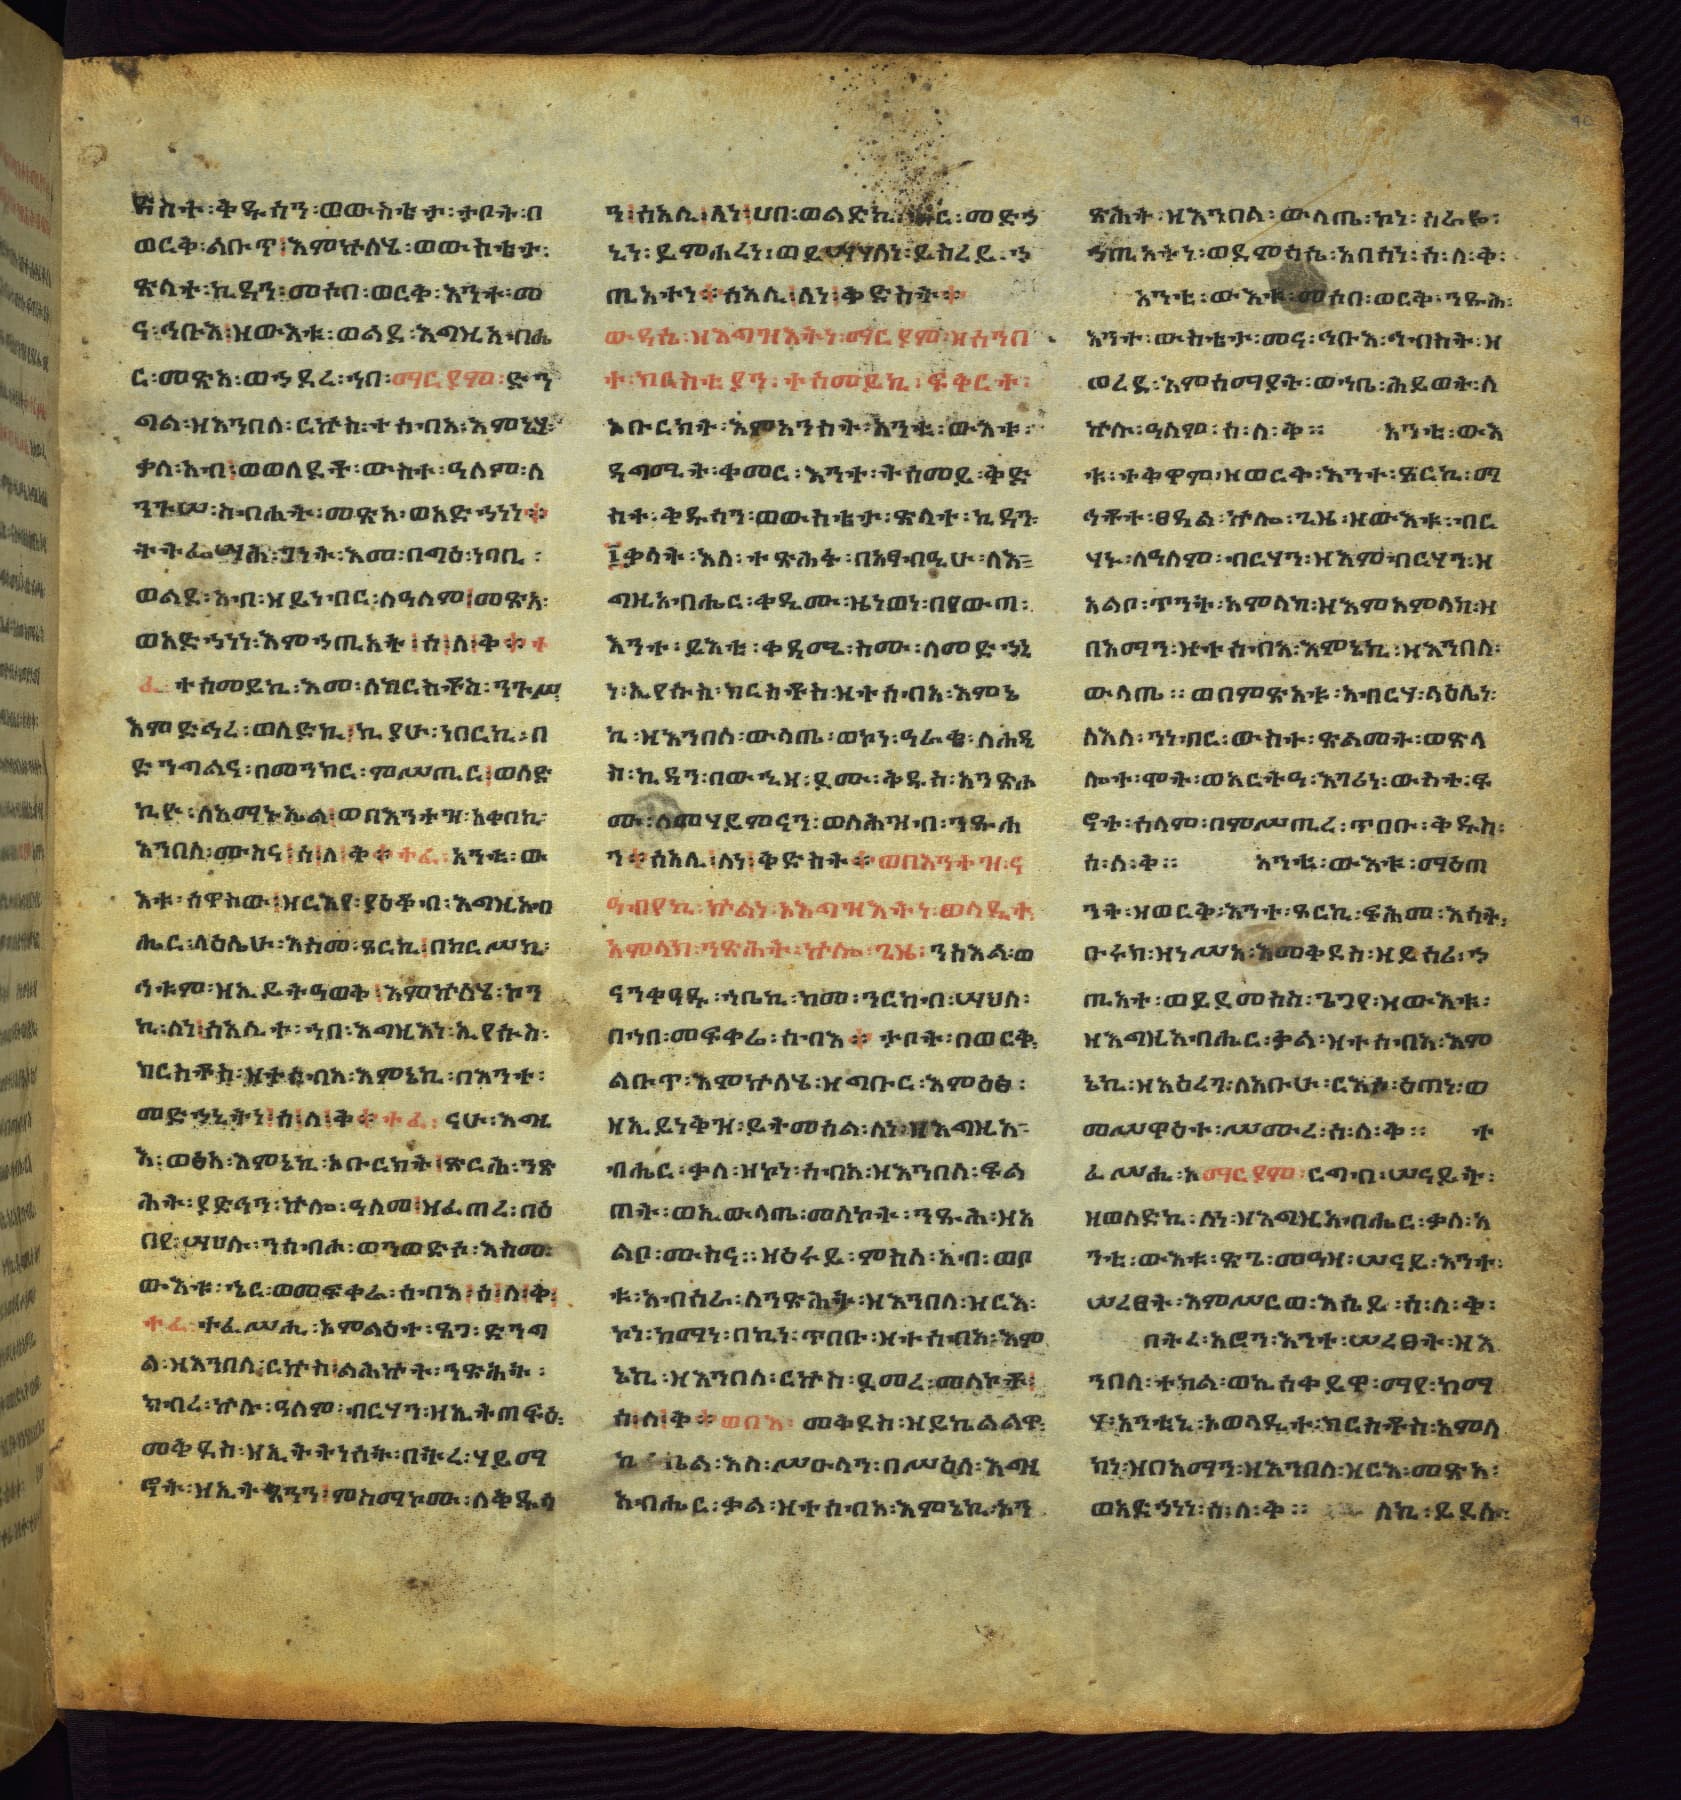 ድስት፡ቅዱሳን፡ወውስቴታ፡ታቦት፡በ
ወርቅ፡ልቡጥ፡እምኵለሄ፡ወውስቴታ፡
ጽላተ፡ኪዳን፡መሶበ፡ወርቅ፡እንተ፡መ
ና፡ኅቡእ፡ዘውእቱ፡ወልደ፡እግዚአብሔ
ር፡መጽአ፡ወኀደረ፡ኀበ፡ማርያም፡ድን
ግል፡ዘእንበለ፡ርኵስ፡ተሰብአ፡እምኔሃ፡
ቃለ፡አብ፡ወወለደቶ፡ውስተ፡ዓለም፡ለ
ንጉሠ፡ስብሐት፡መጽአ፡ወአድኀነነ፨
ትትፌሣሕ፡ገነት፡እመ፡በግዕ፡ነባቢ፡
ወልደ፡አብ፡ዘይነብር፡ለዓለም፡መጽአ፡
ወአድኀነነ፡እምኀጢአት፡ሰ፡ለ፡ቅ፨ተ
ፈ፡ተሰመይኪ፡እመ፡ለክርስቶስ፡ንጉሥ
እምድኅረ፡ወለድኪ፡ኪያሁ፡ነበርኪ፡በ
ድንግልና፡በመንክር፡ምሥጢር፡ወለድ
ኪዮ፡ለአማኑኤል፡ወበእንተዝ፡አቀበኪ፡
እንበለ፡ሙስና፡ሰ፡ለ፡ቅ፨ተፈ፡አንቲ፡ው
እቱ፡ሰዋስው፡ዘርእየ፡ያዕቆብ፡እግዚአብ
ሔር፡ላዕሌሁ፡እስመ፡ጾርኪ፡በከርሥኪ፡
ኅቱም፡ዘኢይትዓወቅ፡እምኵለሄ፡ኮን
ኪ፡ለነ፡ሰአሊተ፡ኀበ፡እግዚእነ፡ኢየሱስ፡
ክርስቶስ፡ዘተሰብአ፡እምኔኪ፡በእንተ፡
መድኀኒትነ፡ሰ፡ለ፡ቅ፨ተፈ፡ናሁ፡እግዚ
እ፡ወፅአ፡እምኔኪ፡ኦቡርክት፡ጽርሕ፡ንጽ
ሕት፡ያድኅን፡ኵሎ፡ዓለመ፡ዘፈጠረ፡በዕ
በየ፡ሣህሉ፡ንሰብሖ፡ወንወድሶ፡እስመ፡
ውእቱ፡ኄር፡ወመፍቀሬ፡ሰብእ፡ሰ፡ለ፡ቅ፡
ተፈ፡ተፈሥሒ፡እምልዕተ፡ጸጋ፡ድንግ
ል፡ዘእንበለ፡ርኵስ፡ልሕኵት፡ንጽሕት፡
ክብረ፡ኵሉ፡ዓለም፡ብርሃን፡ዘኢትጠፍዕ፡
መቅደስ፡ዘኢትትነሰት፡በትረ፡ሃይማ
ኖት፡ዘኢትጸንን፡ምስማኮሙ፡ለቅዱሳ
ን፡ሰአሊ፡ለነ፡ሀበ፡ወልድኪ፡ኄር፡መድኅ
ኒነ፡ይምሐረነ፡ወይሣሃለነ፡ይስረይ፡ኀ
ጢአተነ፨ሰአሊ፡ለነ፡ቅድስት፨
ውዳሴ፡ዘእግዝእትነ፡ማርያም፡ዘሰንበ
ተ፡ክርስቲያን፡ተሰመይኪ፡ፍቅርተ፡
ኦቡርክት፡እምአንስት፡አንቲ፡ውእቱ፡
ዳግሚት፡ቀመር፡እንተ፡ትሰመይ፡ቅድ
ስተ፡ቅዱሳን፡ወውስቴታ፡ጽላተ፡ኪዳን፡
፲ቃላት፡እለ፡ተጽሕፋ፡በአፃብዒሁ፡ለእ
ግዚአብሔር፡ቀዲሙ፡ዜነወነ፡በየውጣ፡
እንተ፡ይእቲ፡ቀዳሚ፡ስሙ፡ለመድኀኒ
ነ፡ኢየሱስ፡ክርስቶስ፡ዘተሰብአ፡እምኔ
ኪ፡ዘእንበለ፡ውላጤ፡ወኮነ፡ዓራቄ፡ለሐዲ
ስ፡ኪዳን፡በውኂዘ፡ደሙ፡ቅዱስ፡አንጽሖ
ሙ፡ለመሃይምናን፡ወለሕዝብ፡ንጹሐ
ን፡ሰአሊ፡ለነ፡ቅድስት፨ወበእንተዝ፡ና
ዓብየኪ፡ኵልነ፡ኦእግዝእትነ፡ወላዲተ፡
አምላክ፡ንጽሕት፡ኵሎ፡ጊዜ፡ንስእል፡ወ
ናንቀዓዱ፡ኀቤኪ፡ከመ፡ንርከብ፡ሣህለ፡
በኀበ፡መፍቀሬ፡ሰብእ፨ታቦት፡በወርቅ፡
ልቡጥ፡እምኵለሄ፡ዘግቡር፡እምዕፅ፡
ዘኢይነቅዝ፡ይትመሰል፡ለነ፡ዘእግዚአ
ብሔር፡ቃለ፡ዘኮነ፡ሰብአ፡ዘእንበለ፡ፍል
ጠት፡ወኢውላጤ፡መለኮት፡ንጹሕ፡ዘአ
ልቦ፡ሙስና፡፡ዘዕሩይ፡ምስለ፡አብ፡ወቦ
ቱ፡አብሰራ፡ለንጽሕት፡ዘእንበለ፡ዘርእ፡
ኮነ፡ከማነ፡በኪነ፡ጥበቡ፡ዘተሰብአ፡እም
ኔኪ፡ዘእንበለ፡ርኵስ፡ደመረ፡መለኮቶ፡
ሰ፡ለ፡ቅ፨ወበእ፡መቅደስ፡ዘይኬልልዋ፡
ኪሩቤል፡እለ፡ሥዑላን፡በሥዕለ፡እግዚ
አብሔር፡ቃል፡ዘተሰብአ፡እምኔኪ፡አን
ጽሕት፡ዘእንበለ፡ውላጤ፡ኮነ፡ሰራዬ፡
ኀጢአትነ፡ወደምሳሴ፡አበሳነ፡ሰ፡ለ፡ቅ፡
አንቲ፡ውእቱ፡መሶበ፡ወርቅ፡ንጹሕ፡
እንተ፡ውስቴታ፡መና፡ኅቡእ፡ኅብስት፡ዘ
ወረደ፡እምሰማያት፡ወኀቤ፡ሕይወት፡ለ
ኵሉ፡ዓለም፡ሰ፡ለ፡ቅ፡፡ አንቲ፡ውእ
ቱ፡ተቅዋም፡ዘወርቅ፡እንተ፡ጾርኪ፡ማ
ኅቶተ፡ፀዳል፡ኵሎ፡ጊዜ፡ዘውእቱ፡ብር
ሃኑ፡ለዓለም፡ብርሃን፡ዘእምብርሃን፡ዘ
አልቦ፡ጥንት፡አምላክ፡ዘእምአምላክ፡ዘ
በአማን፡ዘተሰብአ፡እምኔኪ፡ዘእንበለ፡
ውላጤ፡፡ወበምጽአቱ፡አብርሃ፡ላዕሌነ፡
ለእለ፡ንነብር፡ውስተ፡ጽልመት፡ወጽላ
ሎተ፡ሞት፡ወአርትዓ፡እገሪነ፡ውስተ፡ፍ
ኖተ፡ሰላም፡በምሥጢረ፡ጥበቡ፡ቅዱስ፡
ሰ፡ለ፡ቅ፡፡ አንቲ፡ውእቱ፡ማዕጠ
ንት፡ዘወርቅ፡እንተ፡ጾርኪ፡ፍሕመ፡እሳት፡
ቡሩክ፡ዘነሥአ፡እመቅደስ፡ዘይሰሪ፡ኀ
ጢአተ፡ወይደመስስ፡ጌጋየ፡ዘውእቱ፡
ዘእግዚአብሔር፡ቃል፡ዘተሰብአ፡እም
ኔኪ፡ዘአዕረገ፡ለአቡሁ፡ርእሶ፡ዕጣነ፡ወ
መሥዋዕተ፡ሥሙረ፡ሰ፡ለ፡ቅ፡፡ ተ
ፈሥሒ፡ኦማርያም፡ርግብ፡ሠናይት፡
ዘወለድኪ፡ለነ፡ዘእግዚአብሔር፡ቃለ፡አ
ንቲ፡ውእቱ፡ጽጌ፡መዓዛ፡ሠናይ፡እንተ፡
ሠረፀት፡እምሥርወ፡እሴይ፡ሰ፡ለ፡ቅ፡
በትረ፡አሮን፡እንተ፡ሠረፀት፡ዘእ
ንበለ፡ተክል፡ወኢሰቀይዋ፡ማየ፡ከማ
ሃ፡አንቲኒ፡ኦወላዲተ፡ክርስቶስ፡አምላ
ክነ፡ዘበአማን፡ዘእንበለ፡ዘርእ፡መጽአ፡
ወአድኀነነ፡ሰ፡ለ፡ቅ፡፡ ለኪ፡ይደሉ፡